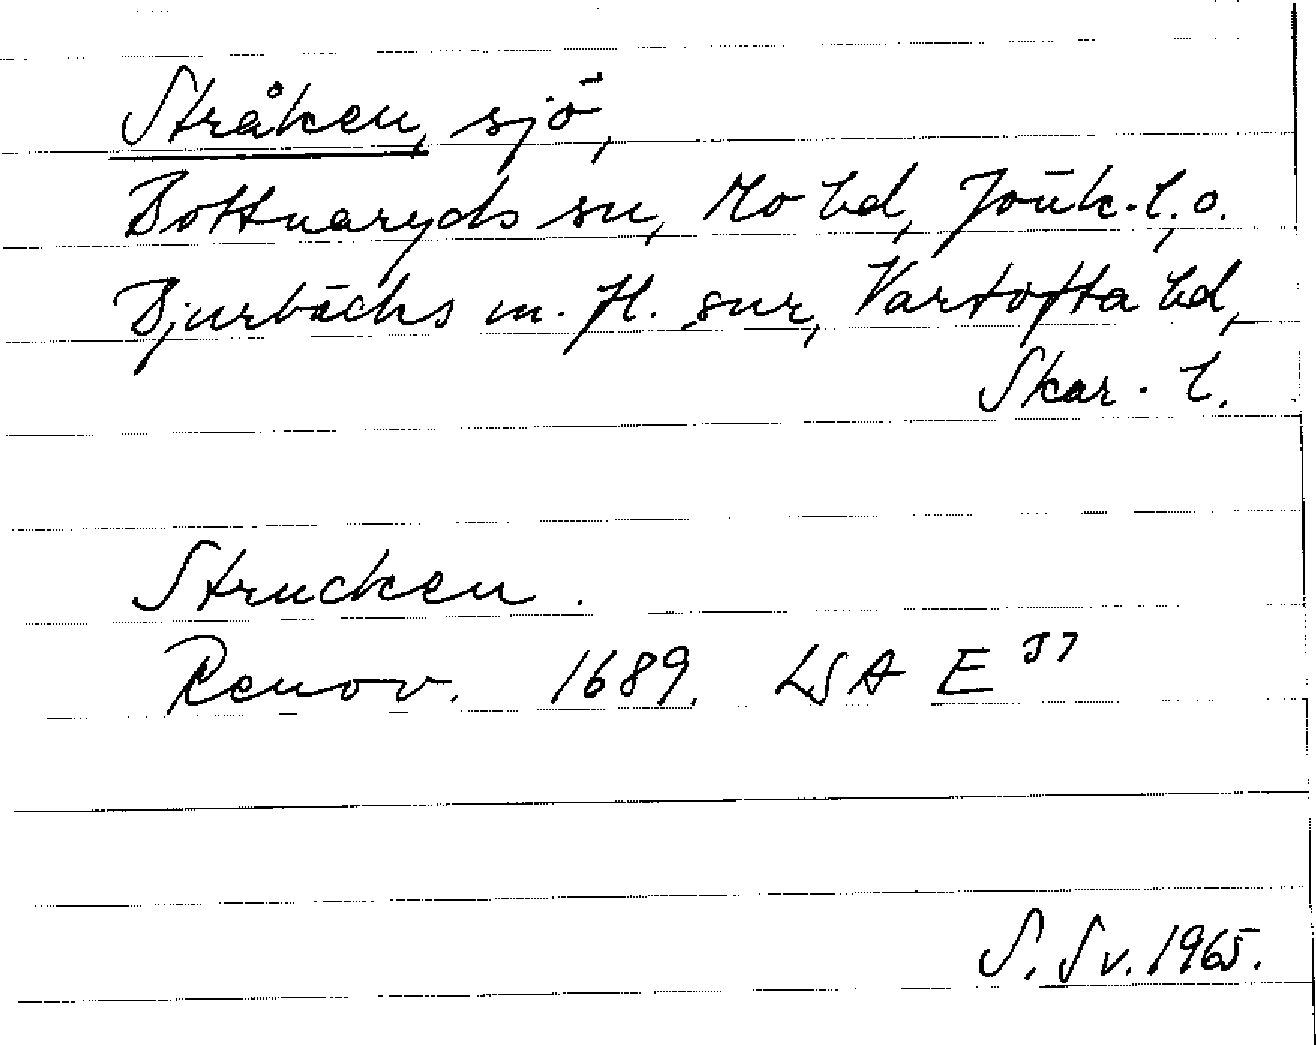 Stråken, sjö,
Bottnaryds sn, Mo hd, Jönk. l, o.
Bjurbäcks m. fl. snr, Vartofta hd,
Skar. l.
Strucken.
Renov. 1689. LSA E 37
S. Sv. 1965.